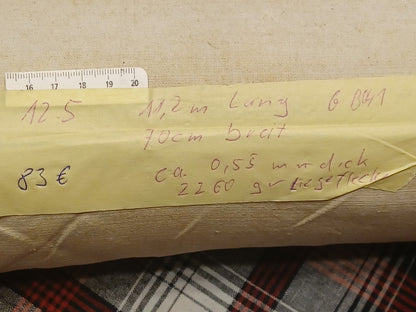 16 17 18 19 20
12.5 11,2 m Lang G 841
70cm breit
83 € ca. 0,55 mm dick
2260 gr Liegeflecken